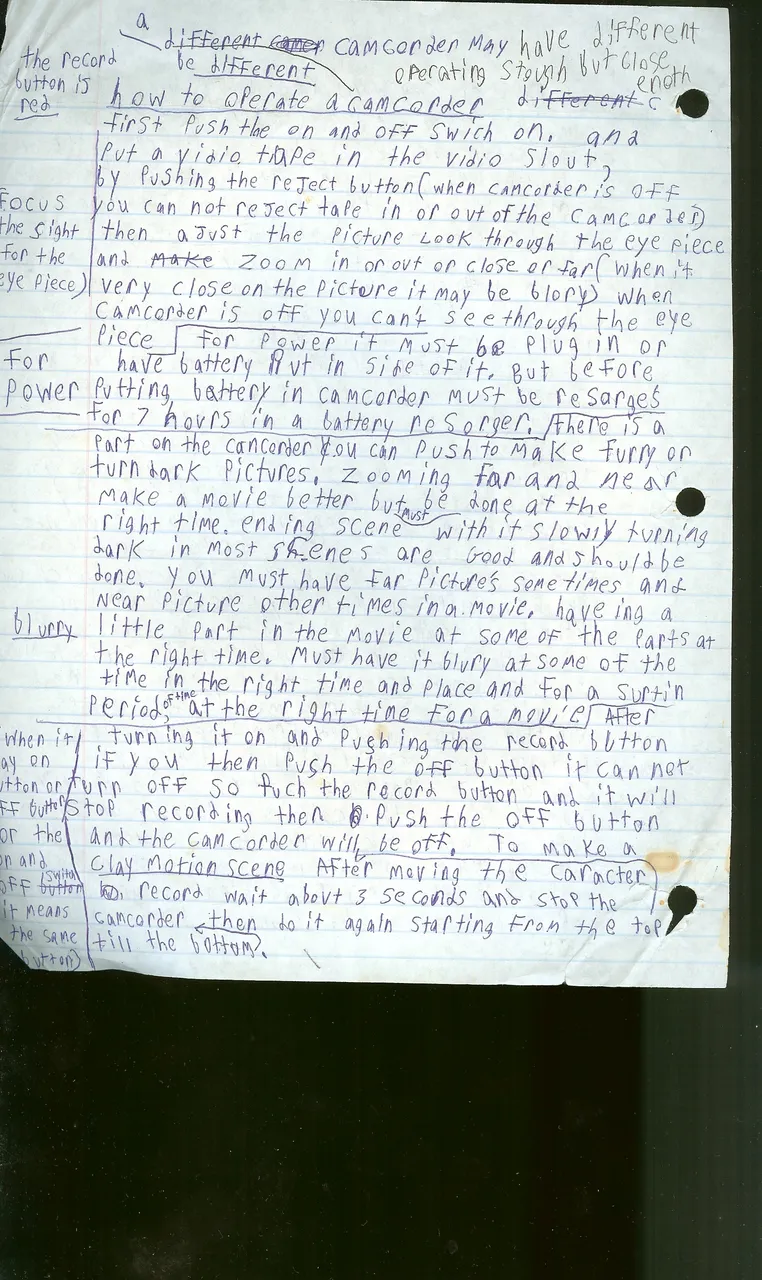 a
different camcorder may have different
be different operating stough but close
enoth
the record
button is
red
how to operate a camcorder different c
first push the on and off swich on. and
put a vidio tape in the vidio slout,
by pushing the reject button (when camcorder is off
you can not reject tape in or out of the camcorder)
then ajust the picture look through the eye piece
and make zoom in or out or close or far (when it
very close on the picture it may be blory) when
camcorder is off you can't see through the eye
piece for power it must be plug in or
have battery put in side of it. But before
putting battery in camcorder must be resarges
for 7 hours in a battery resorger. There is a
part on the camcorder you can push to make furry or
turn dark pictures. zooming far and near
make a movie better but must be done at the
right time. ending scene with it slowly turning
dark in most schenes are good and should be
done. you must have far picture's sometimes and
near picture other times in a movie. haveing a
little part in the movie at some of the parts at
the right time. Must have it blury at some of the
time in the right time and place and for a surtin
period, of time at the right time for a movie After
turning it on and pushing the record button
if you then push the off button it can not
turn off so puch the record button and it will
stop recording then push the off button
and the camcorder will be off. To make a
clay motion scene After moving the caracter
record wait about 3 seconds and stop the
camcorder then do it again starting from the top
till the bottom).
Focus
the sight
for the
eye piece)
For
power
blurry
when it
ay on
utton or
FF button
or the
on and
off button switch
it means
the same
button)